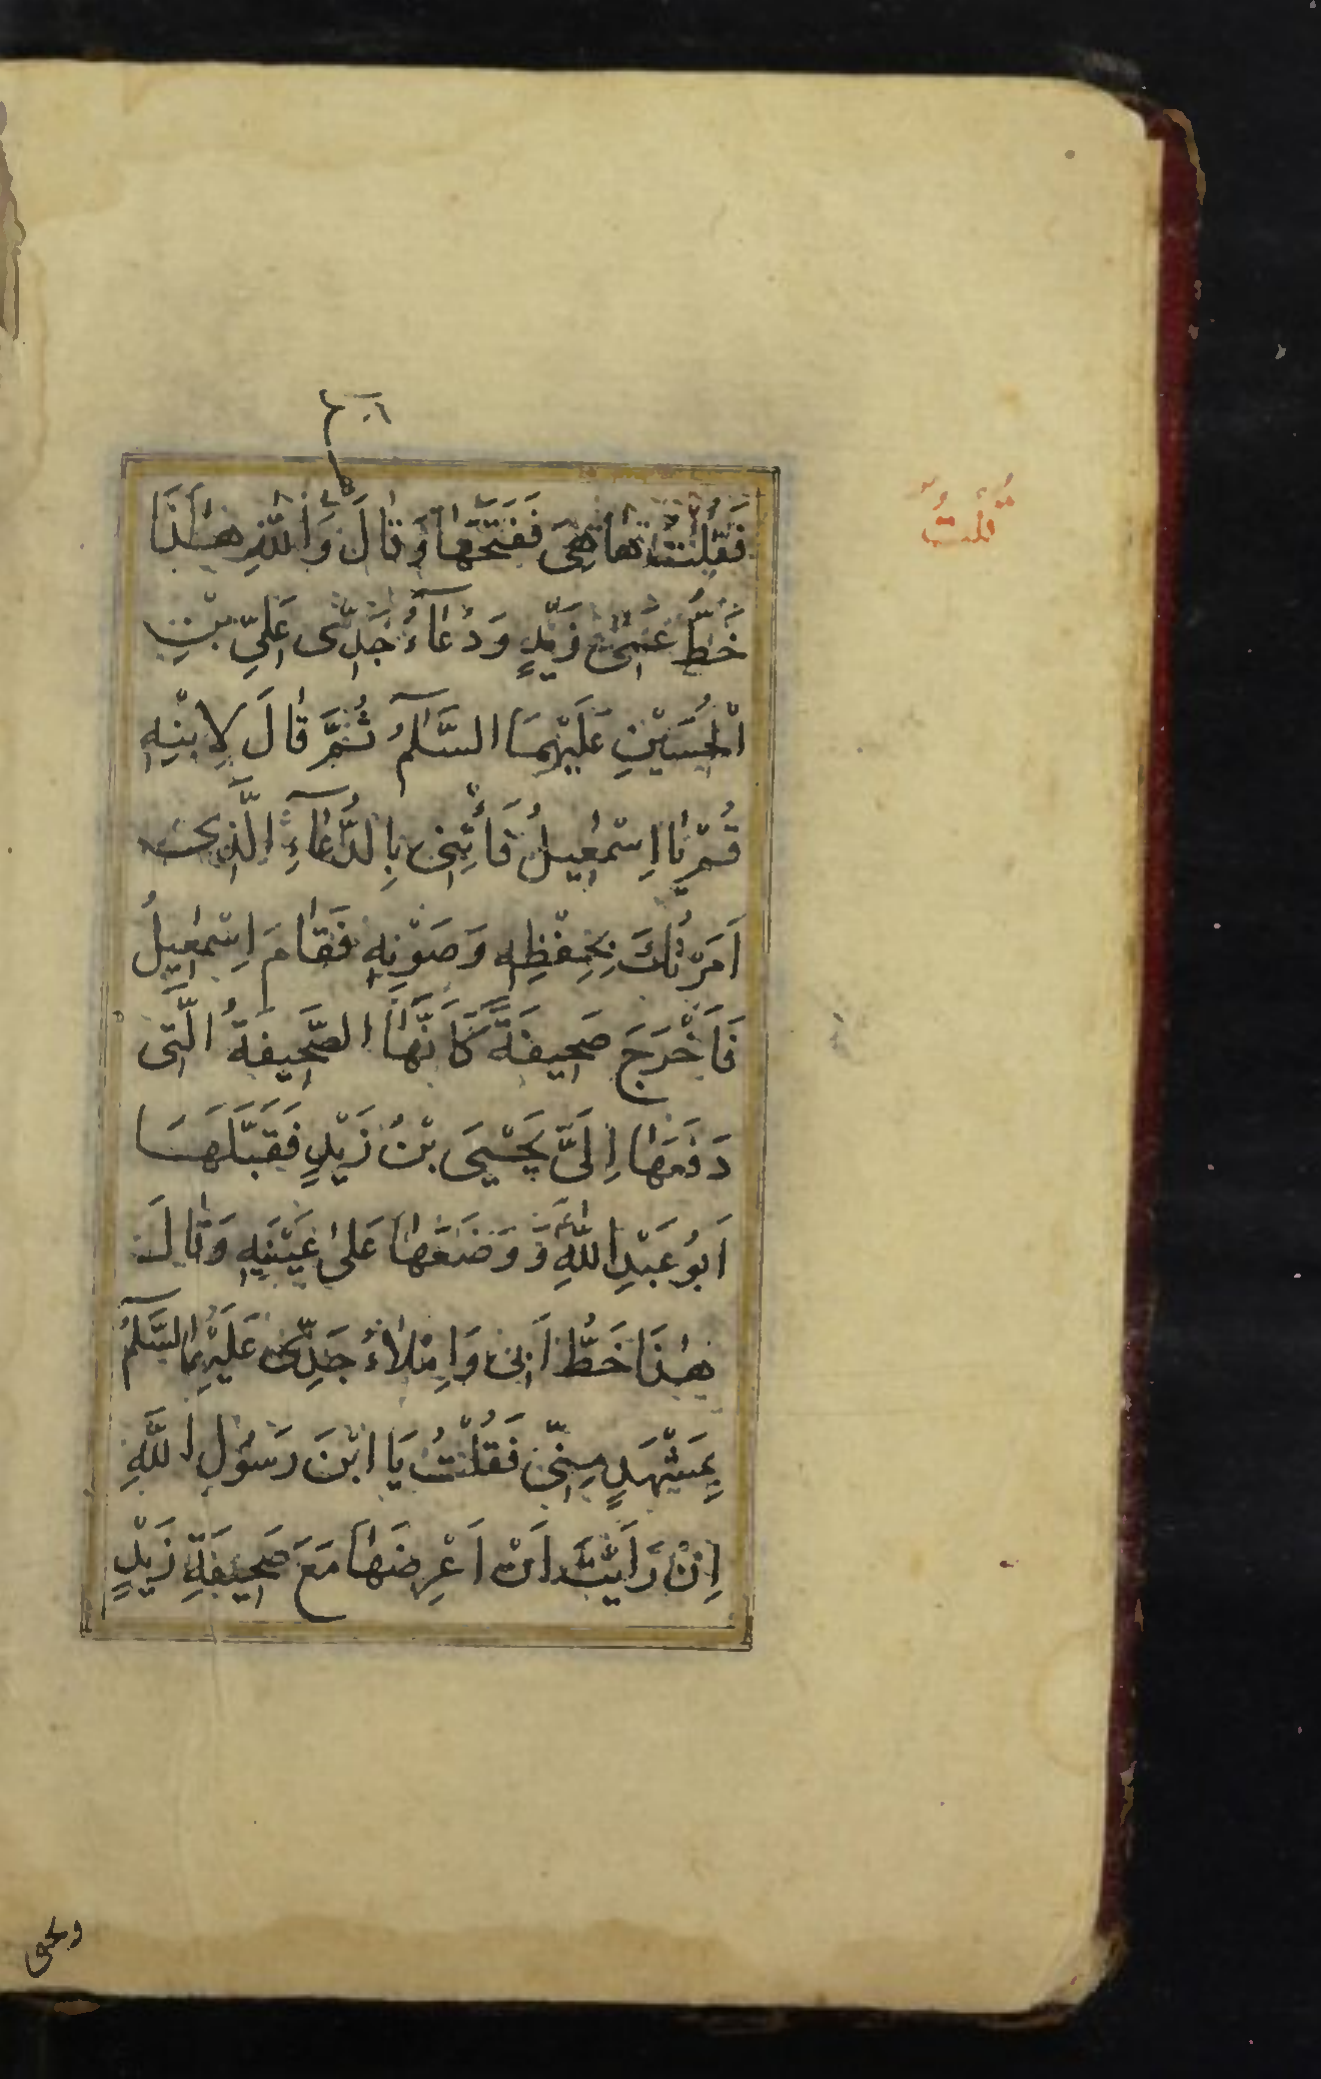 فَقُلْتُ هَا هِيَ فَفَتَحَهَا وَقَالَ وَاللّٰهِ هٰذَا
خَطُّ عَمّى زَيْدٍ وَدُعَآءُ جَدّى عَلِيّ بْنِ
الْحُسَيْنِ عَلَيْهِمَا السَّلٰمُ ثُمَّ قَالَ لِابْنِهِ
قُمْ يَا اِسْمٰعِيلُ فَأْتِنى بِالدُّعَآءِ الَّذى
اَمَرْتُكَ بِحِفْظِهِ وَصَوْنِهِ فَقَامَ اِسْمٰعِيلُ
فَاَخْرَجَ صَحِيفَةً كَاَنَّهَا الصَّحِيفَةُ الَّتى
دَفَعَهَا اِلَىَّ يَحْيَى بْنُ زَيْدٍ فَقَبَّلَهَا
اَبُو عَبْدِ اللّٰهِ وَ وَضَعَهَا عَلىٰ عَيْنِهِ وَقَالَ
هٰذَا خَطُّ اَبى وَاِمْلَاءُ جَدّى عَلَيْهِمَا السَّلٰمُ
بِمَشْهَدٍ مِنّى فَقُلْتُ يَا ابْنَ رَسُولِ اللَّهِ
اِنْ رَاَيْتَ اَنْ اَعْرِضَهَا مَعَ صَحِيفَةِ زَيْدٍ
قُلْتُ